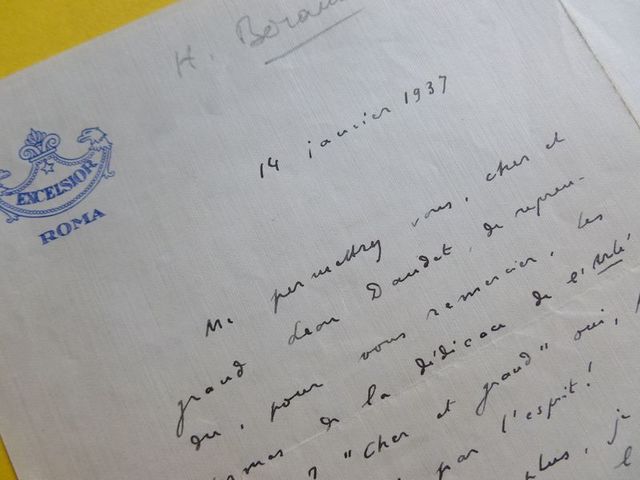 H.
EXCELSIOR
ROMA
14 janvier 1937
Me permettez vous, cher et
grand Léon Daudet, de repren-
dre, pour vous remercier, les
termes de la dédicace de l'
"Cher et grand" oui,
par l'esprit!
plus, je